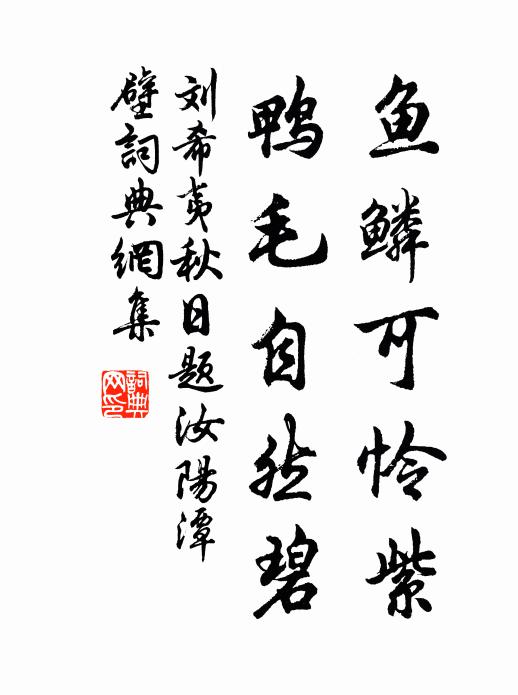 鱼鳞可怜紫
鸭毛自然碧
刘希夷秋日题汝陽潭
壁詞典網集
詞典網印